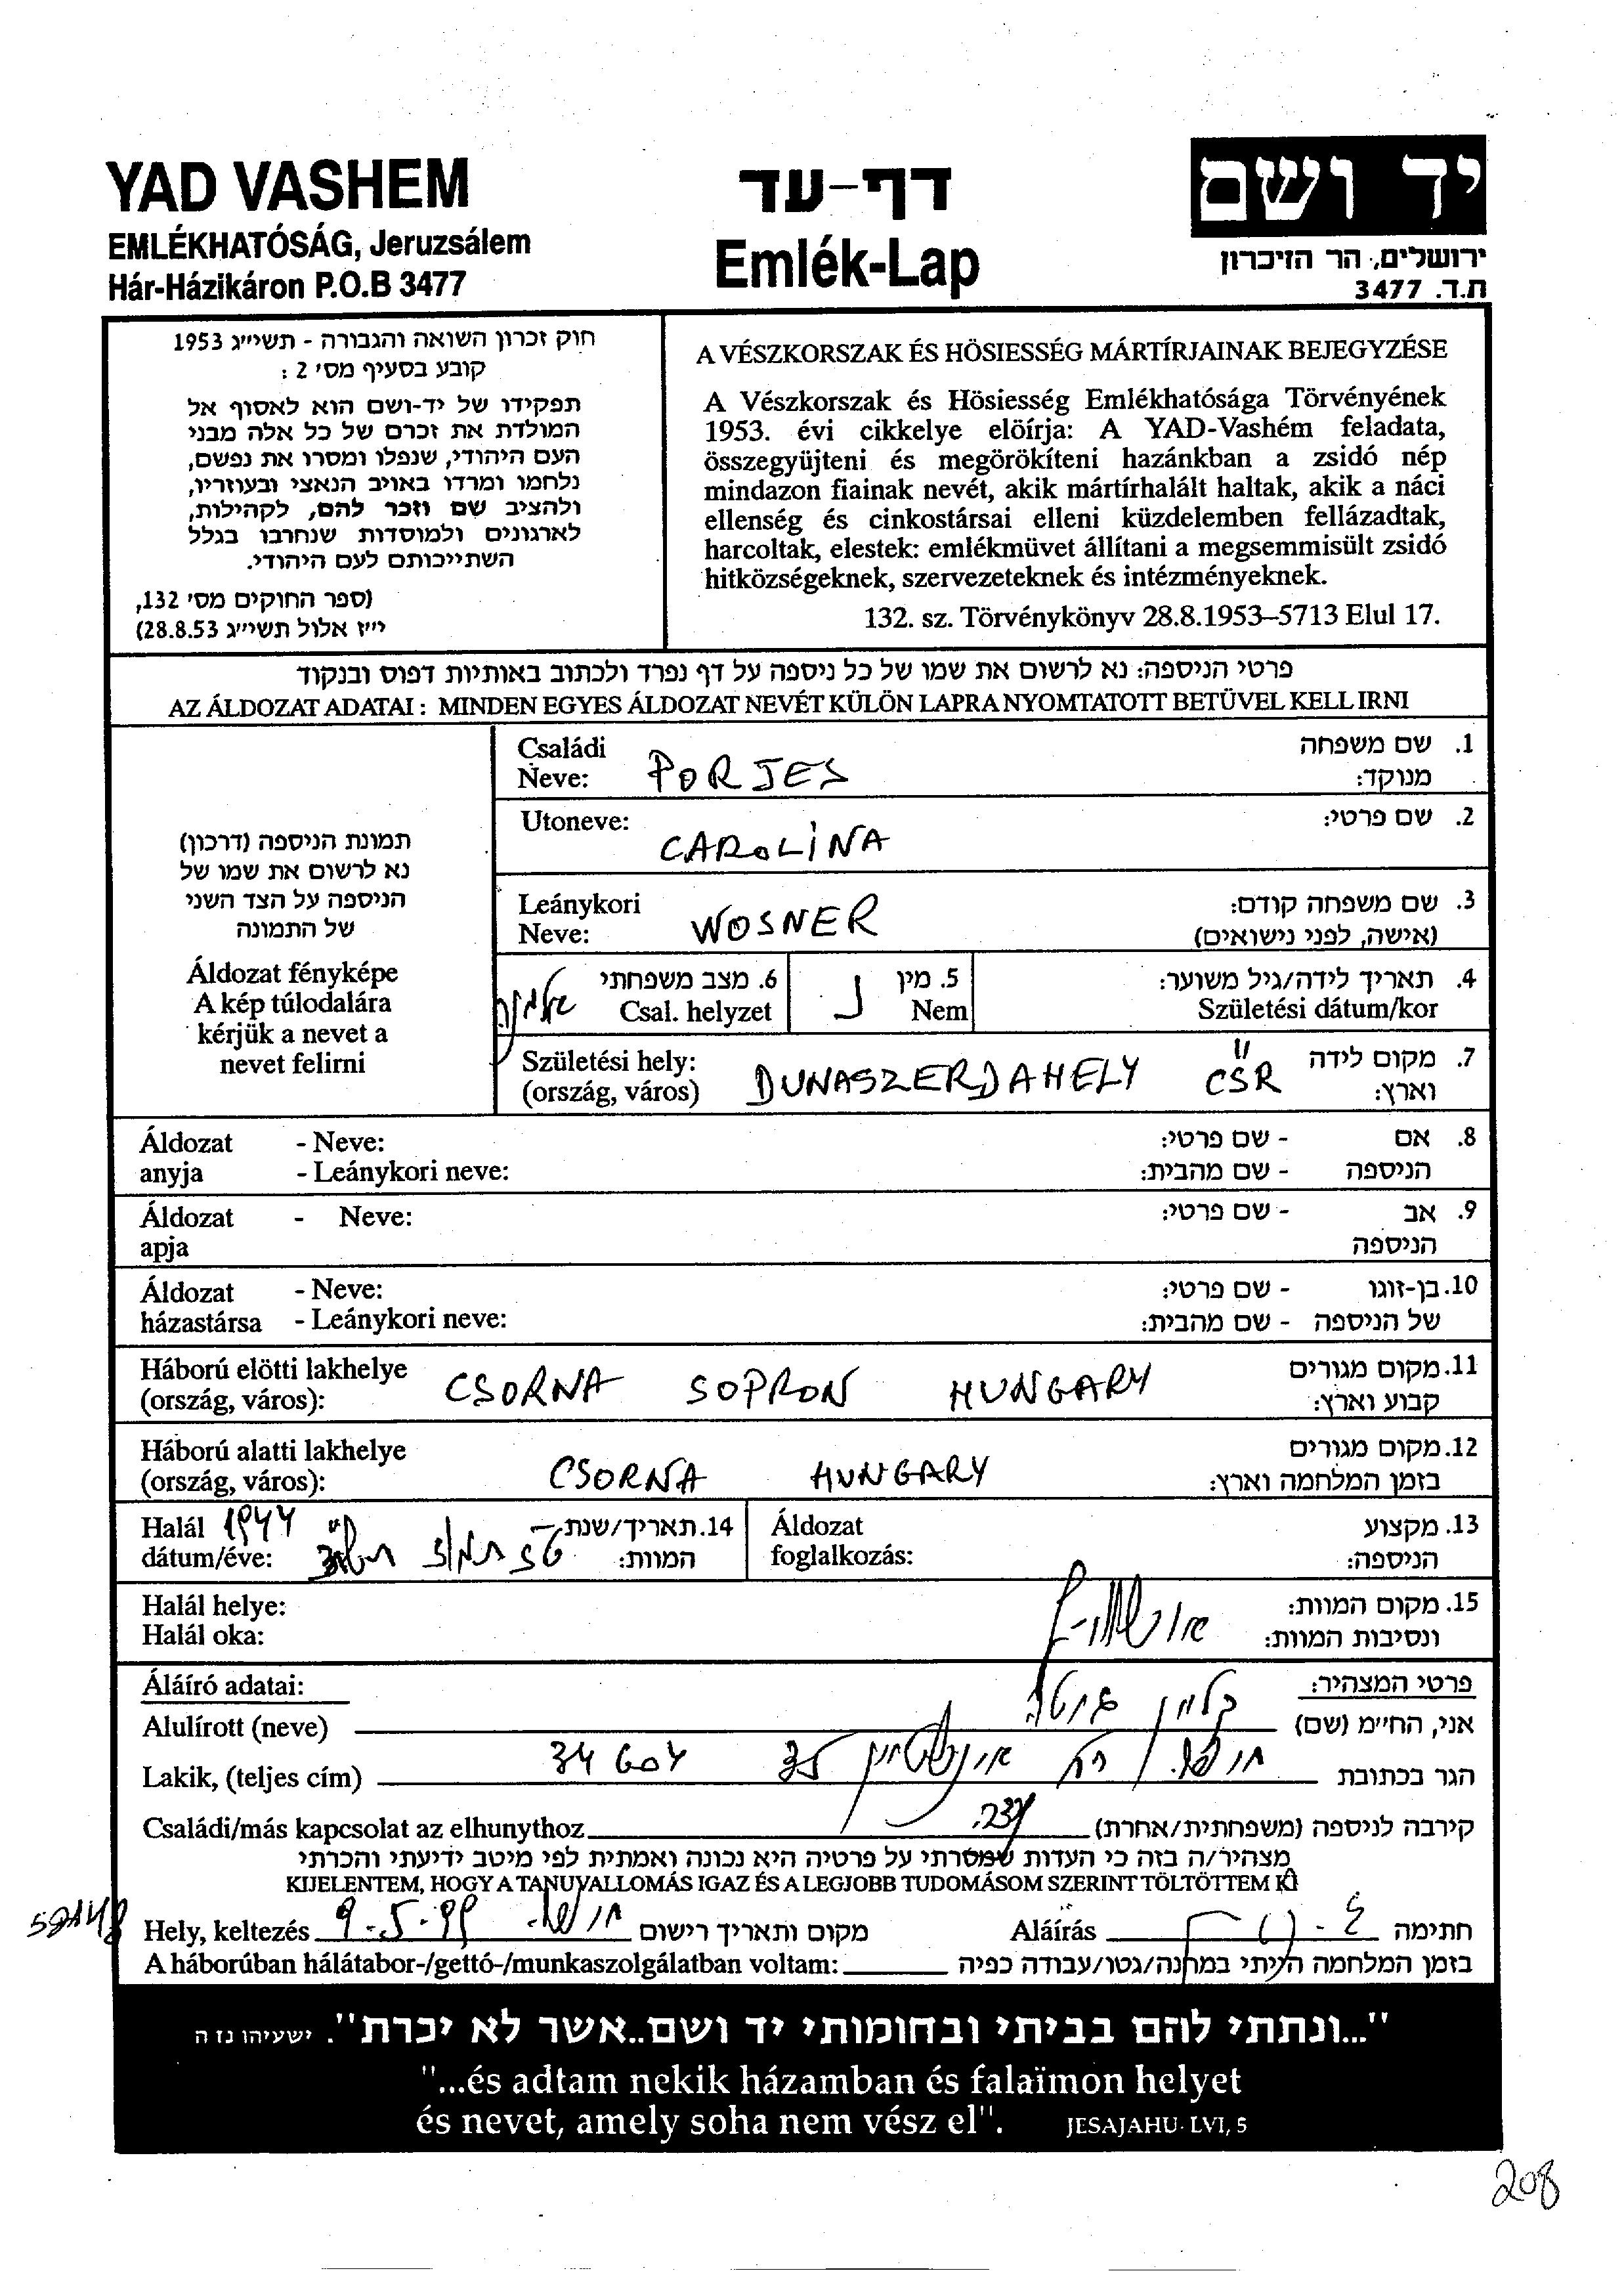 YAD VASHEM
EMLÉKHATÓSÁG, Jeruzsálem
Hár-Házikáron P.O.B 3477
דף-עד
Emlék-Lap
יד ושם
ירושלים, הר הזיכרון
ת.ד. 3477
חוק זכרון השואה והגבורה - תשי״ג 1953
קובע בסעיף מס׳ 2 :
תפקידו של יד-ושם הוא לאסוף אל
המולדת את זכרם של כל אלה מבני
העם היהודי, שנפלו ומסרו את נפשם,
נלחמו ומרדו באויב הנאצי ובעוזריו,
ולהציב שם וזכר להם, לקהילות,
לארגונים ולמוסדות שנחרבו בגלל
השתייכותם לעם היהודי.
(ספר החוקים מס׳ 132,
י״ז אלול תשי״ג 28.8.53)
A VÉSZKORSZAK ÉS HÖSIESSÉG MÁRTÍRJAINAK BEJEGYZÉSE
A Vészkorszak és Hösiesség Emlékhatósága Törvényének
1953. évi cikkelye elöírja: A YAD-Vashém feladata,
összegyüjteni és megörökíteni hazánkban a zsidó nép
mindazon fiainak nevét, akik mártírhalált haltak, akik a náci
ellenség és cinkostársai elleni küzdelemben fellázadtak,
harcoltak, elestek: emlékmüvet állítani a megsemmisült zsidó
hitközségeknek, szervezeteknek és intézményeknek.
132. sz. Törvénykönyv 28.8.1953–5713 Elul 17.
פרטי הניספה: נא לרשום את שמו של כל ניספה על דף נפרד ולכתוב באותיות דפוס ובנקוד
AZ ÁLDOZAT ADATAI : MINDEN EGYES ÁLDOZAT NEVÉT KÜLÖN LAPRA NYOMTATOTT BETÜVEL KELL IRNI
תמונת הניספה (דרכון)
נא לרשום את שמו של
הניספה על הצד השני
של התמונה
Áldozat fényképe
A kép túlodalára
kérjük a nevet a
nevet felirni
Családi
Neve: PORJES
1. שם משפחה
מנוקד:
Utoneve: CAROLINA
2. שם פרטי:
Leánykori
Neve: WOSNER
3. שם משפחה קודם:
(אישה, לפני נישואים)
6. מצב משפחתי
Csal. helyzet
אלמנה
5. מין
Nem
נ
4. תאריך לידה/גיל משוער:
Születési dátum/kor
Születési hely:
(ország, város) DUNASZERDAHELY CSR
7. מקום לידה
וארץ:
Áldozat - Neve:
anyja - Leánykori neve:
8. אם - שם פרטי:
הניספה - שם מהבית:
Áldozat - Neve:
apja
9. אב - שם פרטי:
הניספה
Áldozat - Neve:
házastársa - Leánykori neve:
10. בן-זוגו - שם פרטי:
של הניספה - שם מהבית:
Háború elötti lakhelye
(ország, város): CSORNA SOPRON HUNGARY
11. מקום מגורים
קבוע וארץ:
Háború alatti lakhelye
(ország, város): CSORNA HUNGARY
12. מקום מגורים
בזמן המלחמה וארץ:
Halál 1944
dátum/éve:
14. תאריך/שנת
המוות:
Áldozat
foglalkozás:
13. מקצוע
הניספה:
Halál helye:
Halál oka:
אושוויץ
15. מקום המוות:
ונסיבות המוות:
Áláíró adatai:
פרטי המצהיר:
Alulírott (neve)
קליין
אני, החי״מ (שם)
Lakik, (teljes cím)
חיפה, רח׳ איינשטיין 35 34604
הגר בכתובת
Családi/más kapcsolat az elhunythoz
נכד
קירבה לניספה (משפחתית/אחרת)
מצהיר/ה בזה כי העדות שמסרתי על פרטיה היא נכונה ואמתית לפי מיטב ידיעתי והכרתי
KIJELENTEM, HOGY A TANUVALLOMÁS IGAZ ÉS A LEGJOBB TUDOMÁSOM SZERINT TÖLTÖTTEM KI
Hely, keltezés 9-5-99 חיפה מקום ותאריך רישום
Aláírás חתימה
A háborúban hálátabor-/gettó-/munkaszolgálatban voltam:
בזמן המלחמה הייתי במחנה/גטו/עבודה כפיה
"...ונתתי להם בביתי ובחומותי יד ושם..אשר לא יכרת". ישעיהו נז ה
"...és adtam nekik házamban és falaïmon helyet
és nevet, amely soha nem vész el". JESAJAHU- LVI, 5
208